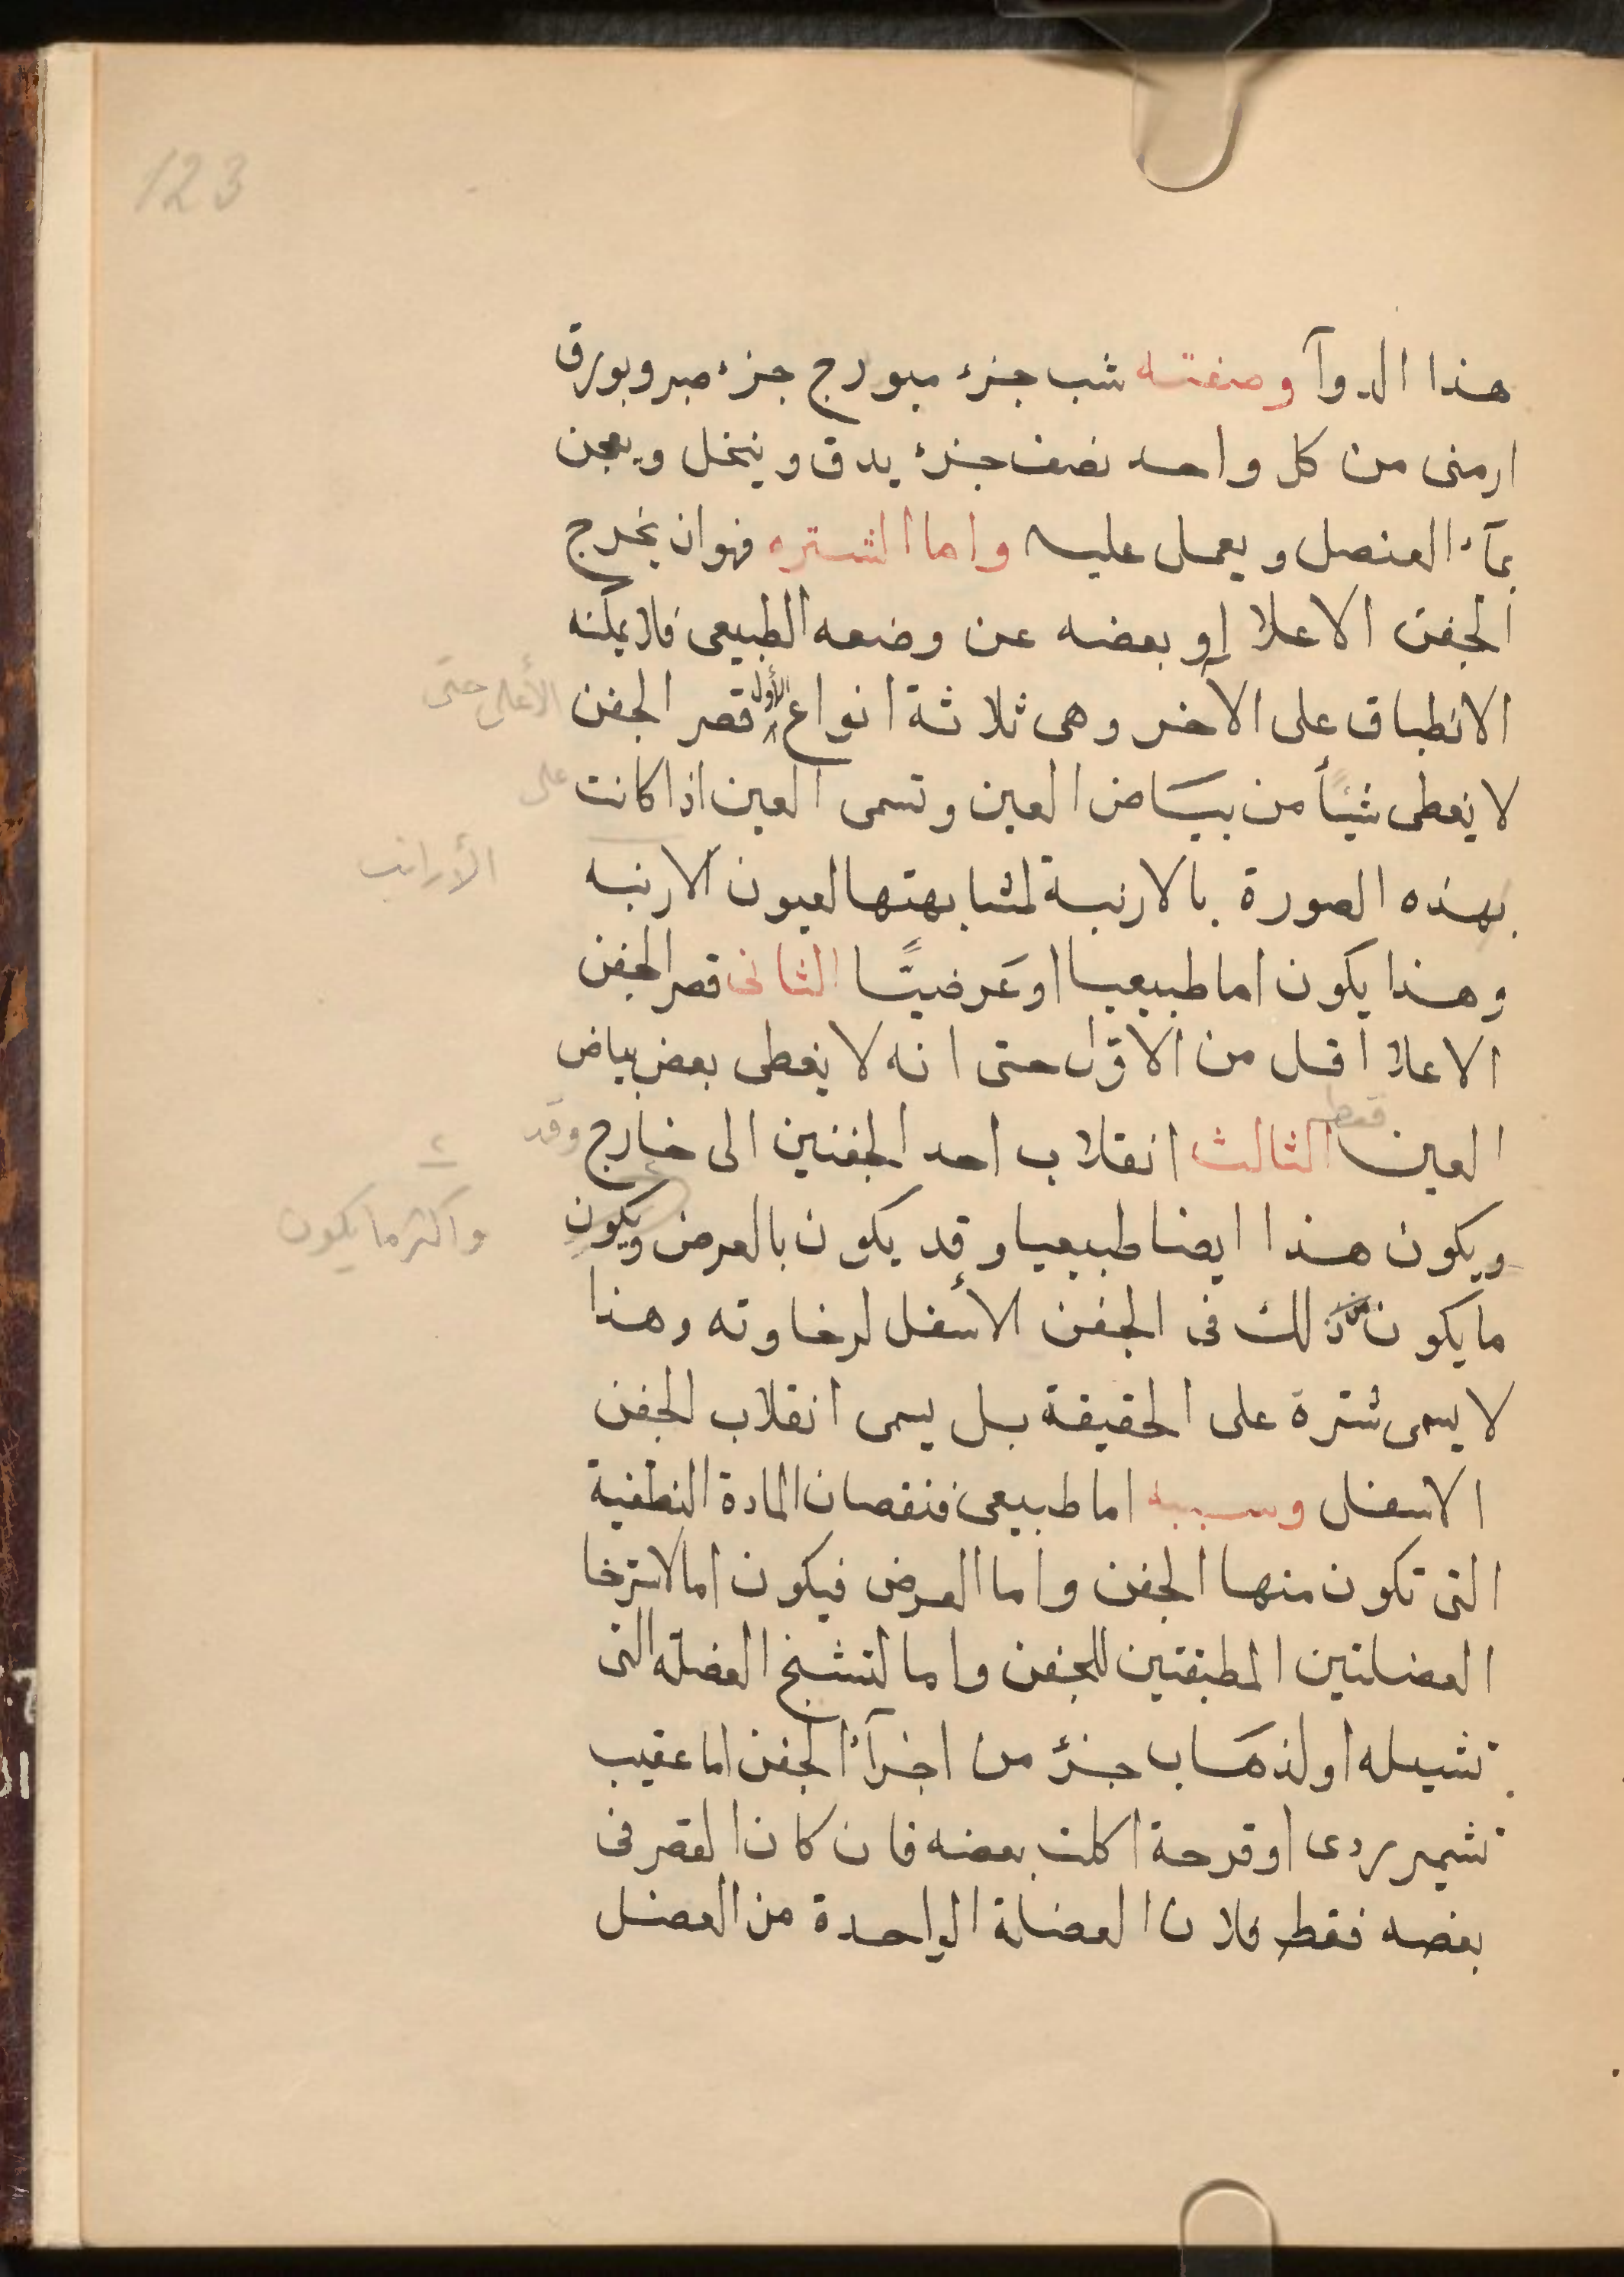 123
هذا الدوآ وصفته شب جزء ميورج جزء صبر وبورق
ارمنى من كل واحد نصف جزء يدق وينخل ويعجن
بمآء العنصل ويعمل عليه واما الشتره فهو ان يخرج
الجفن الاعلا او بعضه عن وضعه الطبيعى فلا يمكنه
الانطباق على الاخر وهى ثلاثة انواع الأول قصر الجفن
الأعلى حتى
لا يغطى شيئاً من بيَاض العين وتسمى العين اذا كانت
على
بهذه الصورة بالارنبية لمشابهتها لعيون الارنبه
الأرانب
وهذا يكون اما طبيعيا او عَرضيًّا الثانى قصر الجفن
الاعلا اقل من الاوّل حتى انه لا يغطى بعض بياض
فقط
العين الثالث انقلاب احد الجفنين الى خارج
وقد
ويكون هذا ايضا طبيعيا وقد يكون بالعرض ويكون
واكثر ما يكون
ما يكون من ذلك فى الجفن الأسفل لرخاوته وهذا
لا يسمى شترة على الحقيقة بل يسمى انقلاب الجفن
الاسفل وسببه اما طبيعى فنقصان المادة النطفية
التى تكون منها الجفن واما العرض فيكون اما لاسترخا
العضلتين المطبقتين للجفن واما لتشنج العضلة التى
تشيله او لذهَاب جزء من اجزآء الجفن اما عقيب
تشمير ردى او قرحة اكلت بعضه فان كان القصر فى
بعضه فقط فلان العضلة الواحدة من العضل